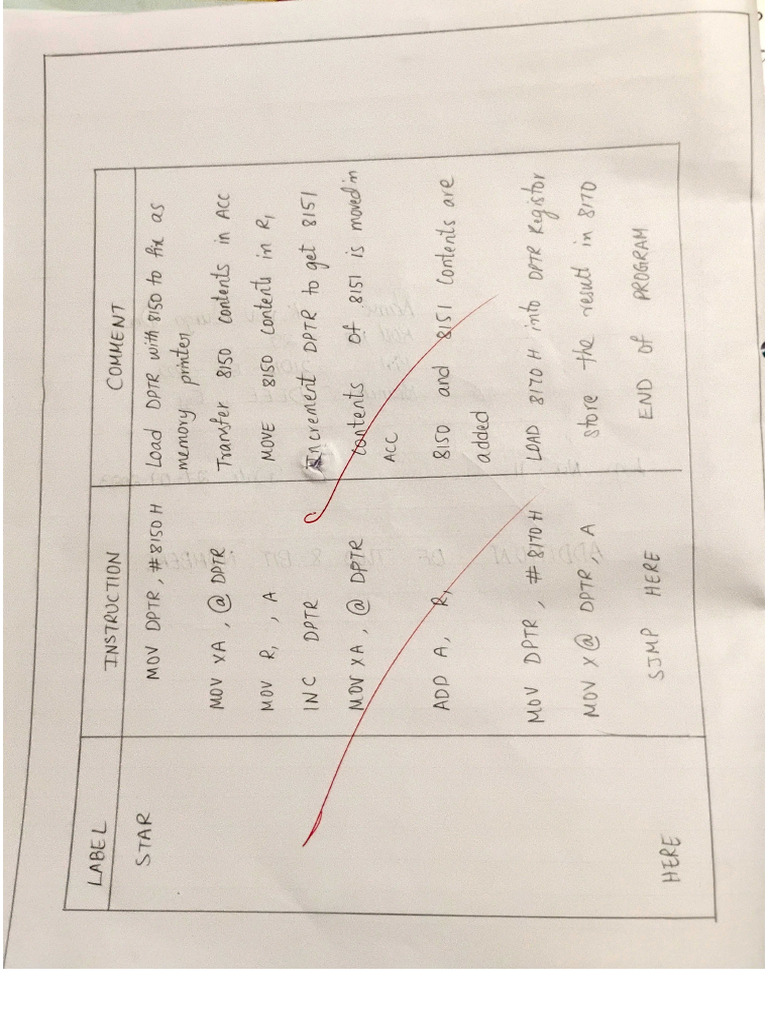 LABEL INSTRUCTION COMMENT
STAR MOV DPTR, #8150H Load DPTR with 8150 to fix as
memory printer
MOV XA, @ DPTR. Transfer 8150 contents in ACC
MOV R₁, A MOVE 8150 contents in R₁
INC DPTR Increment DPTR to get 8151
MOV XA, @ DPTR contents of 8151 is moved in
ACC
ADD A, R₁ 8150 and 8151 contents are
added
MOV DPTR, #8170H LOAD 8170H into DPTR Registor
MOV X@ DPTR, A store the result in 8170
HERE SJMP HERE END of PROGRAM